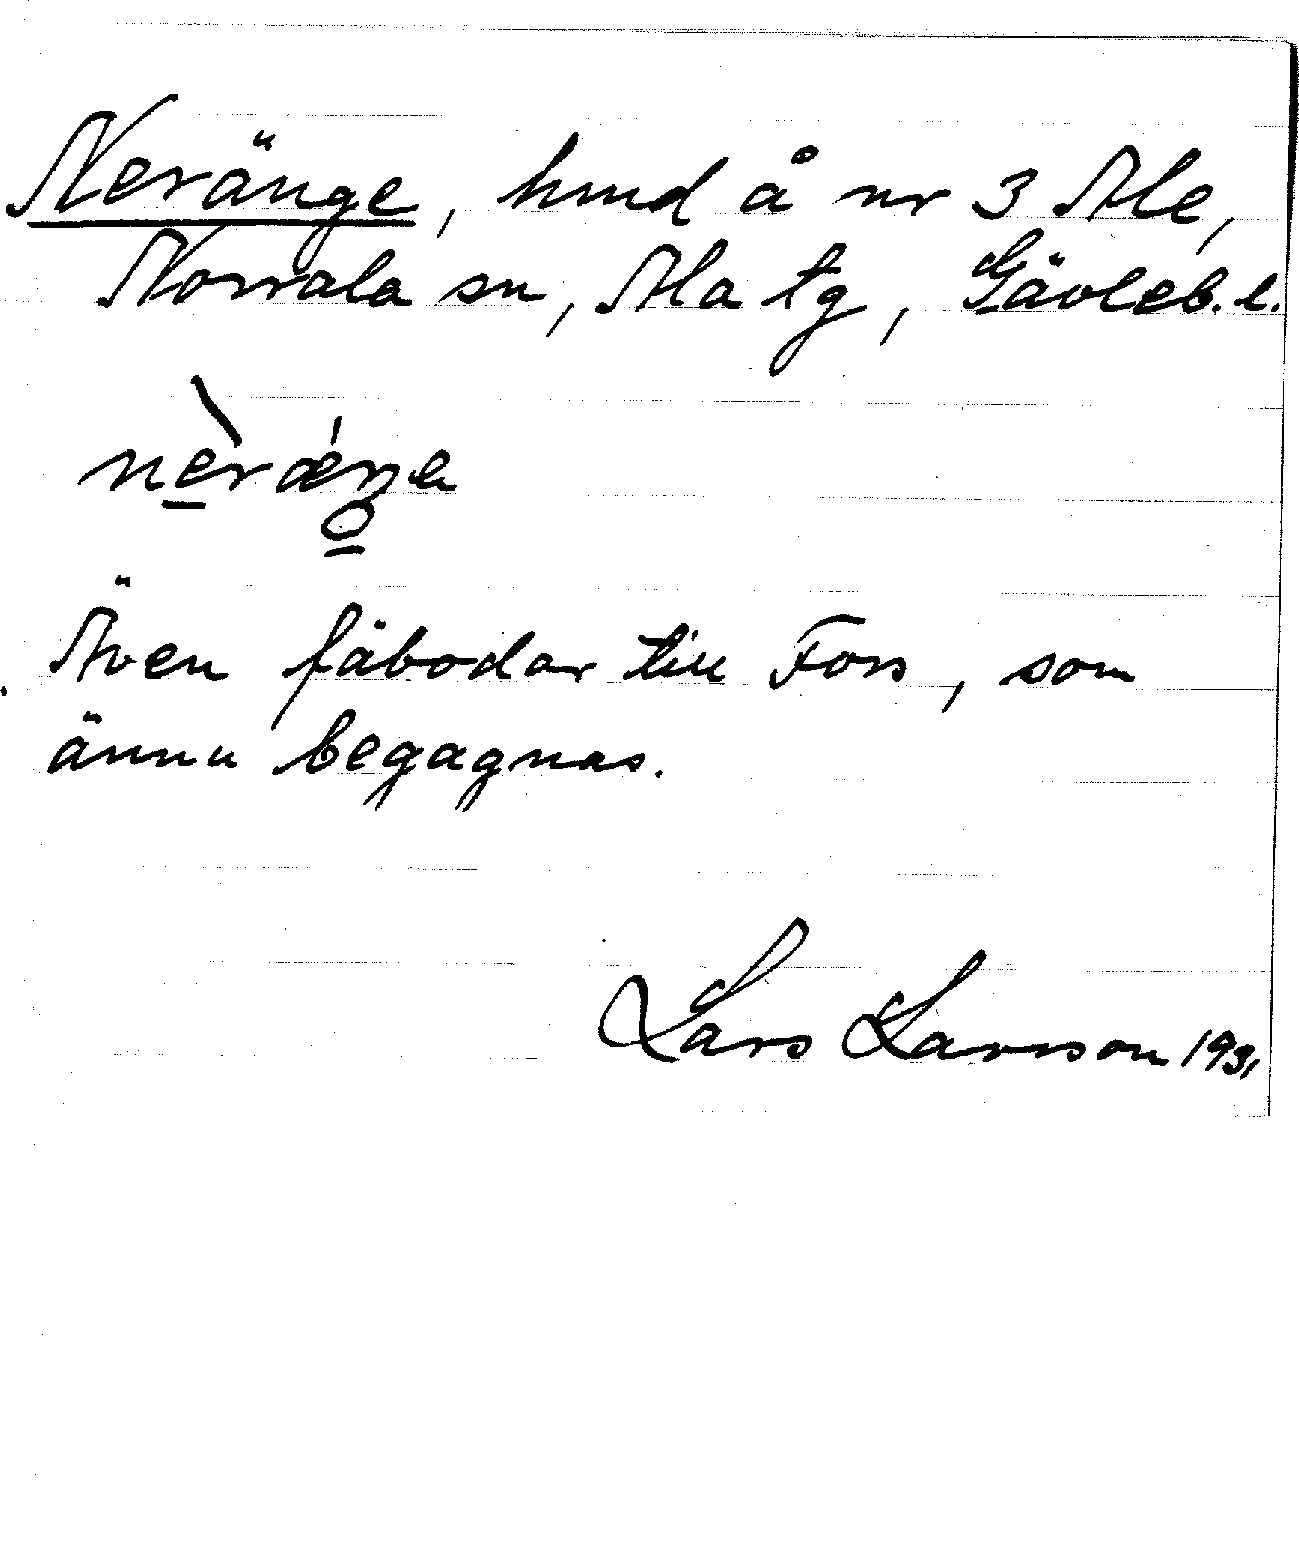 Neränge, hmd å nr 3 Ale,
Norrala sn, Ala tg, Gävleb. l.
nèrǽŋe
Även fäbodar till Fors, som
ännu begagnas.
Lars Larsson 1931